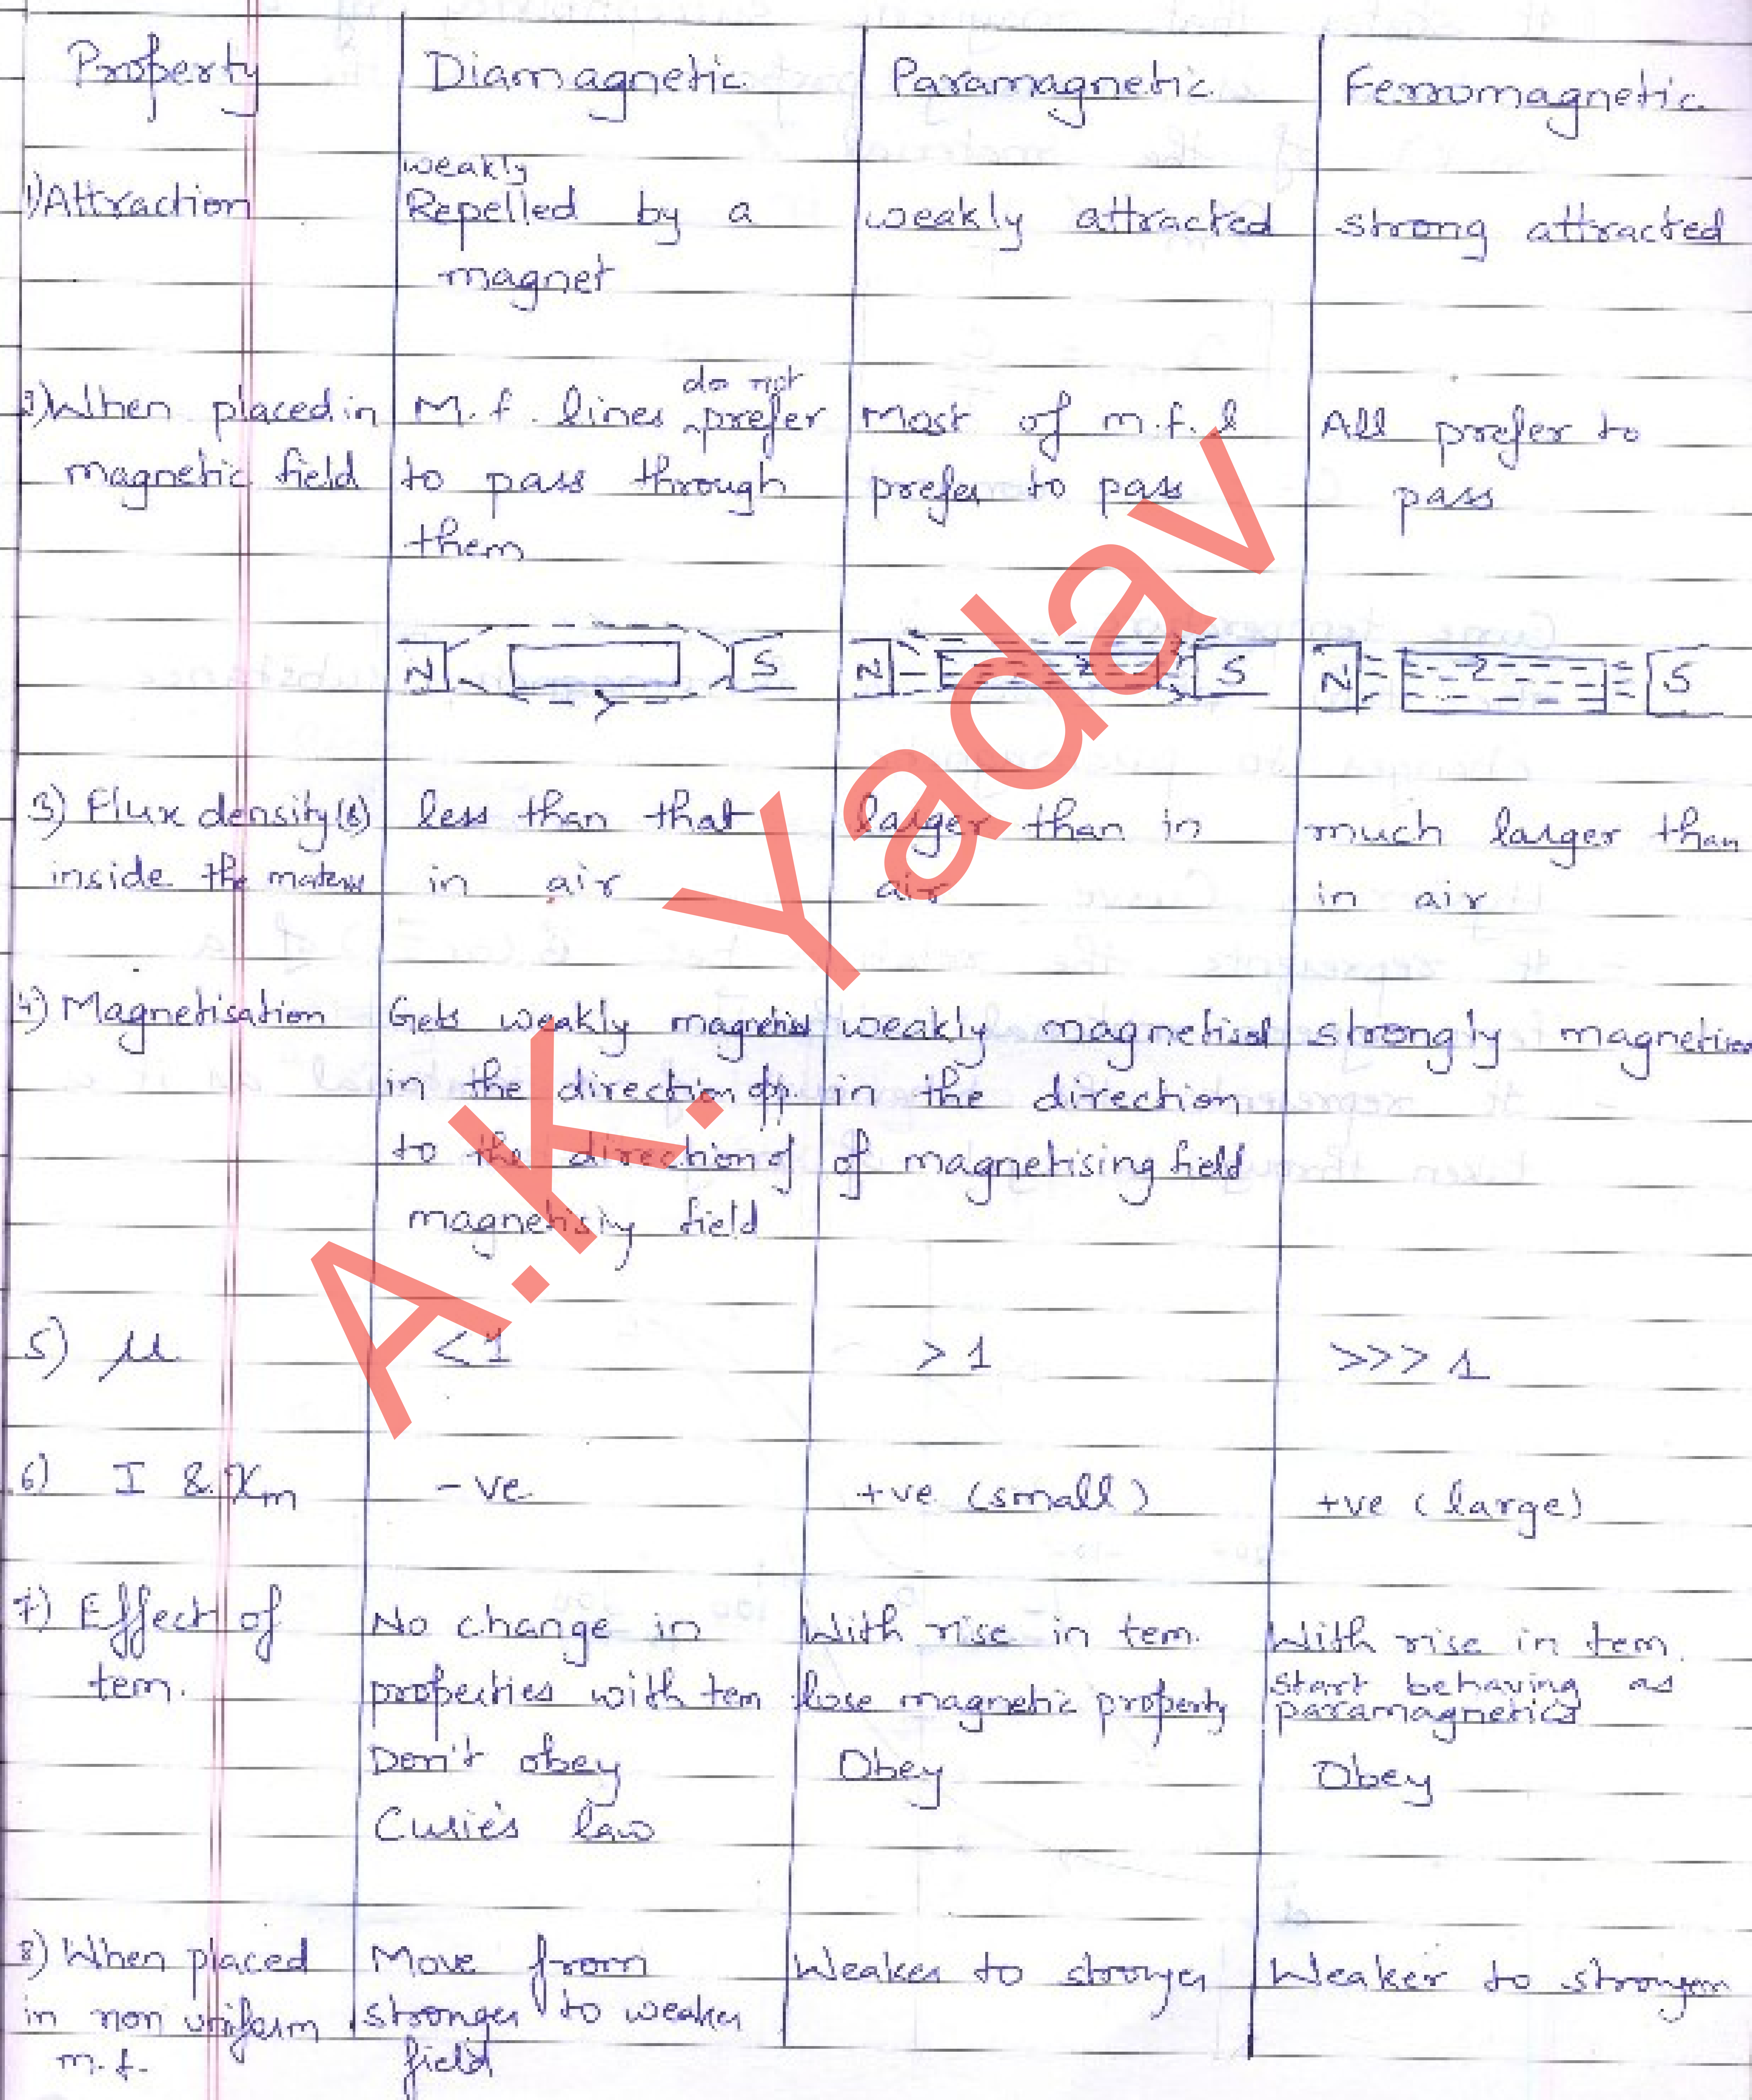 Property Diamagnetic Paramagnetic Ferromagnetic
1) Attraction
weakly
Repelled by a
magnet
weakly attracted
strong attracted
2) When placed in
magnetic field
do not
M.f. lines prefer
to pass through
them
Most of m.f.l
prefer to pass
All prefer to
pass
N S N S N S
3) Flux density (B)
inside the material
less than that
in air
larger than in
air
much larger than
in air
4) Magnetisation
Gets weakly magnetised
in the direction opp.
to the direction of
magnetisiy field
weakly magnetised
in the direction
of magnetising field
strongly magnetised
5) μ <1 >1 >>>1
6) I & χm -ve +ve (small) +ve (large)
7) Effect of
tem.
No change in
properties with tem
Don't obey
Curie's law
With rise in tem.
lose magnetic property
Obey
With rise in tem
start behaving as
paramagnetics
Obey
8) When placed
in non uniform
m.f.
Move from
stronger to weaker
field
Weaker to stronger
Weaker to stronger
A.K. Yadav